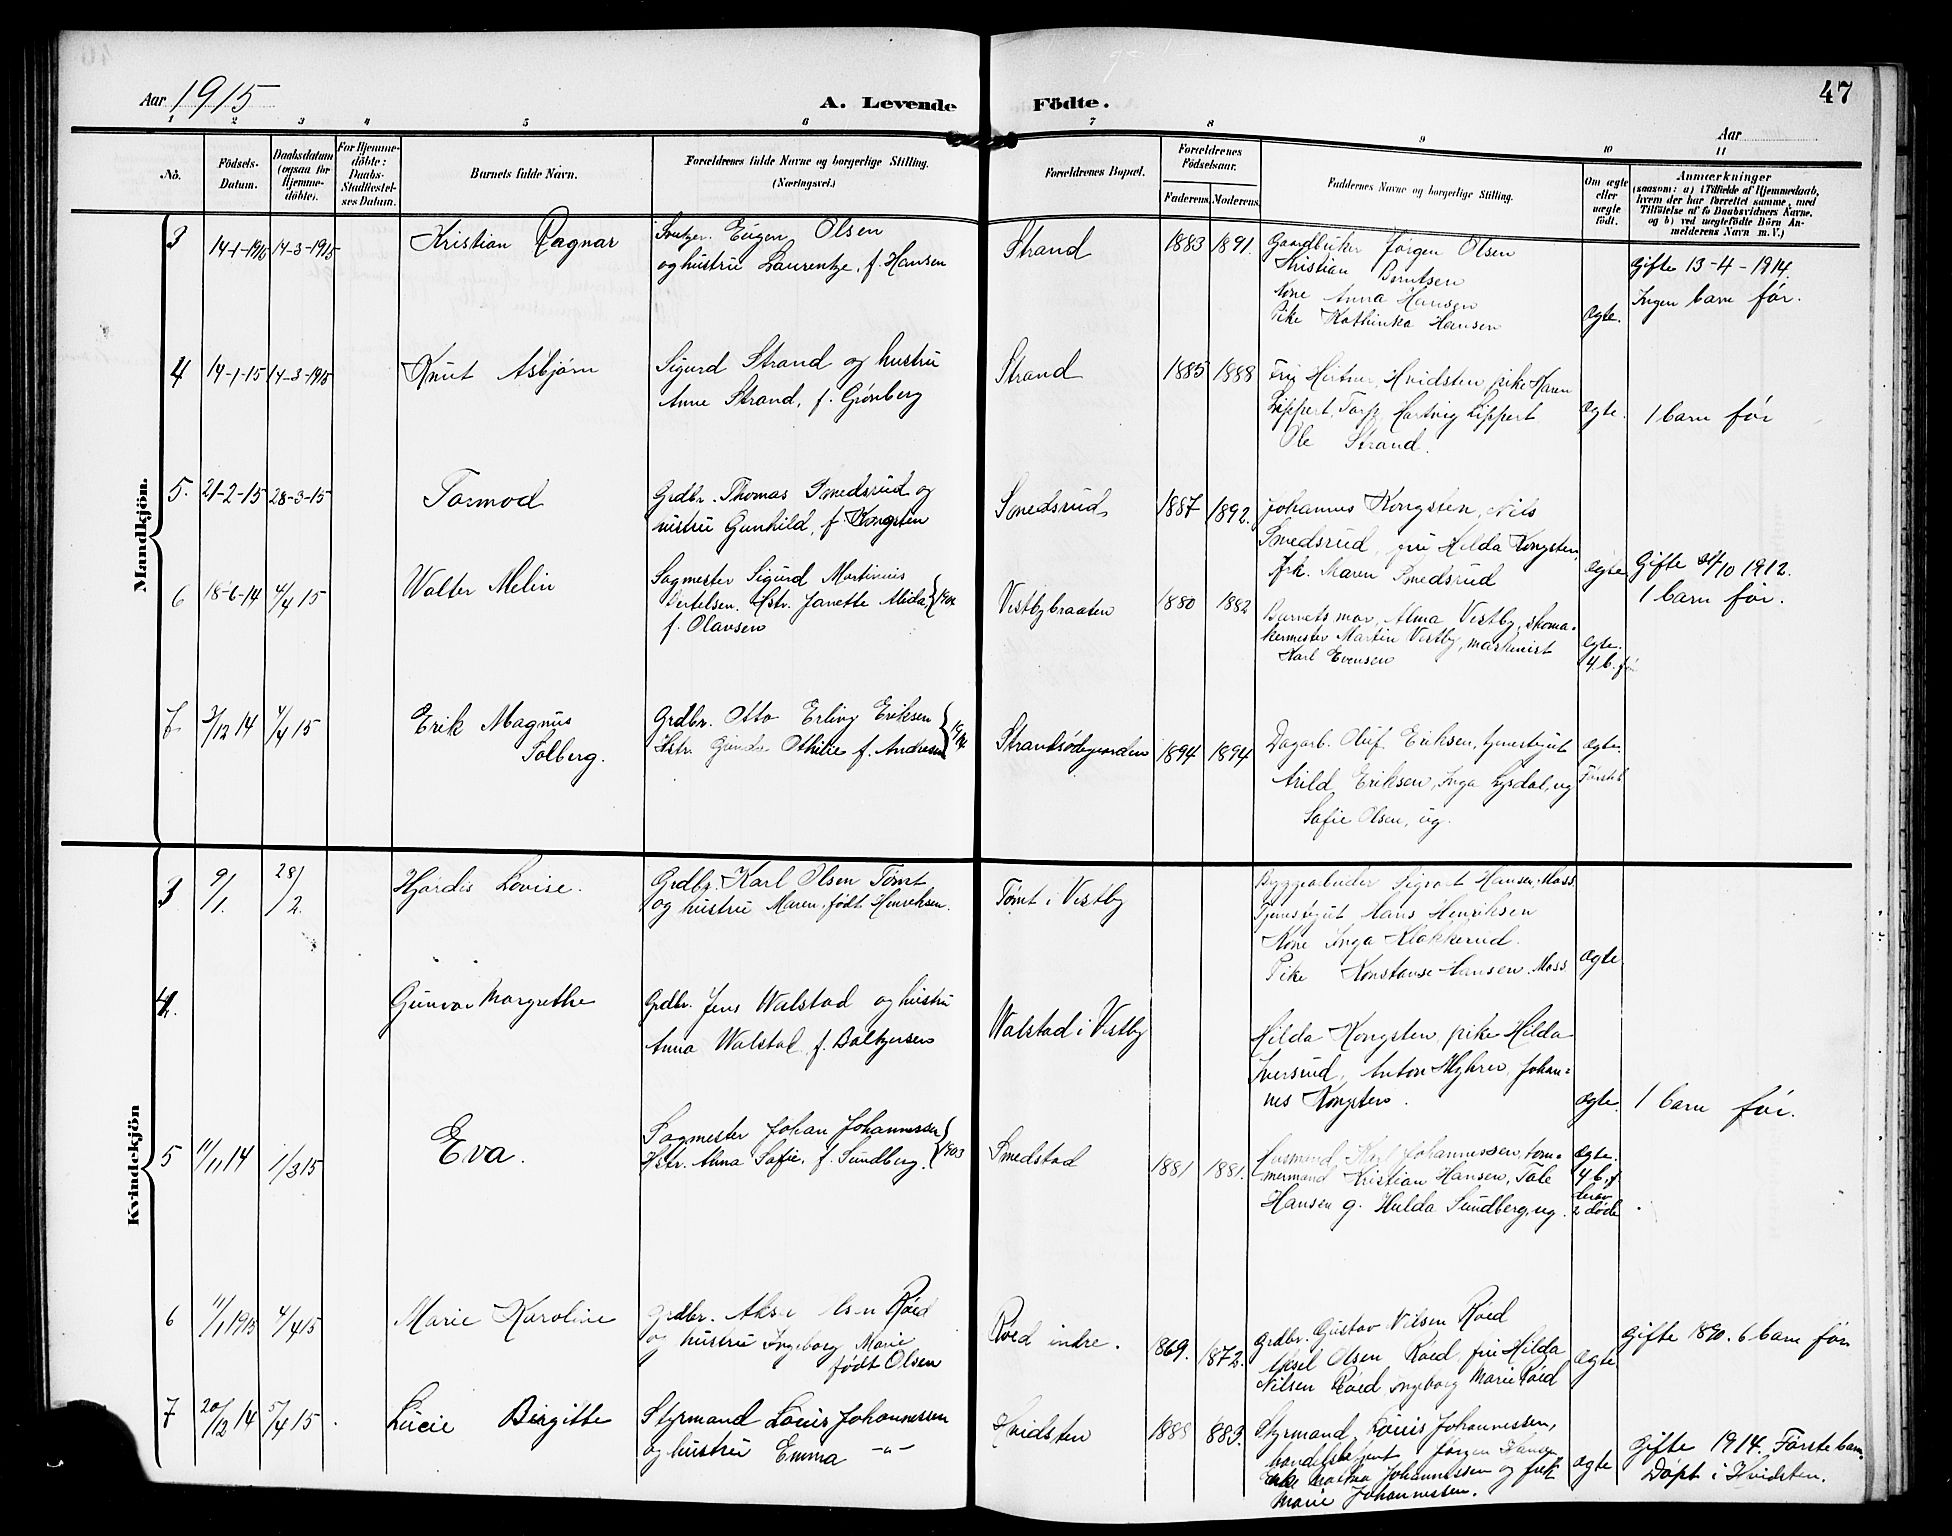 Aar 1915
A. Levende Födte.
47
Aar
1 2 3 4 5 6 7 8 9 10 11
No.
Födsels-Datum.
Daabsdatum (ogsaa for Hjemme-döbte).
For Hjemme-döbte: Daabs-Stadfæstel-ses Datum.
Barnets fulde Navn.
Forældrenes fulde Navne og borgerlige Stilling. (Næringsvei.)
Forældrenes Bopæl.
Forældrenes Födselsaar.
Faderens. Moderens.
Faddernes Navne og borgerlige Stilling.
Om ægte eller uægte födt.
Anmærkninger
(saasom: a) i Tilfælde af Hjemmedaab,
hvem der har forrettet samme, med
Tilföielse af to Daabsvidners Navne,
og b) ved uægtefödte Börn An-
melderens Navn m. V.)
Mandkjön.
3 14-1-1915 14-3-1915
Kristian Ragnar
Eugen Olsen
og hustru Laurentze, f. Hansen
Strand
1883 1891.
Gaardbruker Jørgen Olsen
Kristian Berntsen
Kone Anna Hansen
Pike Kathinka Hansen
Ægte.
Gifte 13-4-1914.
Ingen barn før.
4 14-1-15 14-3-1915
Knut Asbjørn
Sigurd Strand og hustru
Anne Strand, f. Grønberg
Strand
1885 1888
Hvidsten, pike Karen
Lippert, Torp, Hartvig Lippert
Ole Strand.
Ægte.
1 barn før
5. 21-2-15 28-3-15
Tormod
Grdbr. Thomas Smedsrud og
hustru Gunhild, f. Kongsten
Smedsrud
1887 1892.
Johannes Kongsten, Nils
Smedsrud, fru Hilda Kongsten,
frk. Maren Smedsrud
Ægte
Gifte /10 1912.
1 barn før.
6 18-6-14 4/4 15
Walter Melin
Sagmester Sigurd Martinius
Bertelsen. Hstr. Janette Alida
f. Olavsen
Vestbybraaten
1880 1882
Barnets mor, Alma Vestby, skoma-
kermester Martin Vestby, maskinist
Karl Evensen
Ægte.
4 b. før
7 3/12 14 4/4 15
Erik Magnus
Solberg.
Grdbr. Otto Erling Eriksen
Hstr. Othilie f. Andresen
Strandsødegaarden
1894 1894
Dagarb. Oluf Eriksen, tjenestegut
Arild Eriksen, Inga Lysdal, ug
Safie Olsen, ug.
Ægte.
Første b.
Kvindekjön
3 9/1. 28/2.
Hjørdis Lovise.
Grdbr. Karl Olsen Tømt
og hustru Maren, født Henriksen.
Tømt i Vestby
Byggearbeider Sigvart Hansen, Moss
Tjenestegut Hans Henriksen
Kone Inga Klokkerud.
Pike Konstanse Hansen, Moss
Ægte
4.
Gunvor Margrethe
Grdbr. Jens Walstad og hustru
Anna Walstad f. Baltzersen
Walstad i Vestby
Hilda Kongsten, pike Hilda
Iversrud, Anton Myhrer, Johan=
nes Kongsten.
Ægte.
1 barn før.
5 11/11 14 1/3 15
Eva.
Sagmester Johan Johannessen
Hstr. Anna Safie. f. Sundberg. 1903
Smedstad
1881 1881.
Husmand Karl Johannessen, tøm-
mermand Kristian Hansen, Tale
Hansen g. Hulda Sundberg, ug.
Ægte.
4 b. f.
derav
2 døde
6 11/1 1915 4/4 15
Marie Karoline
Grdbr. Aksel Olsen Røed
og hustru Ingeborg Marie
født Olsen
Røed indre.
1869. 1872.
Grdbr. Gustav Nilsen Røed
Aksel Olsen Røed, fru Hilda
Nilsen Røed, Ingeborg Marie Røed
Ægte
Gifte 1890. 6 barn før.
7 20/12 14 5/4 15
Lucie Birgitte
Styrmand Louis Johannessen
og hustru Emma -"-
Hvidsten
1888 883.
Styrmand Louis Johannessen,
Jørgen Hansen
Johannessen og frk
Marie Johannessen.
Ægte
Gifte 1914. Første barn
Døpt i Hvidsten.